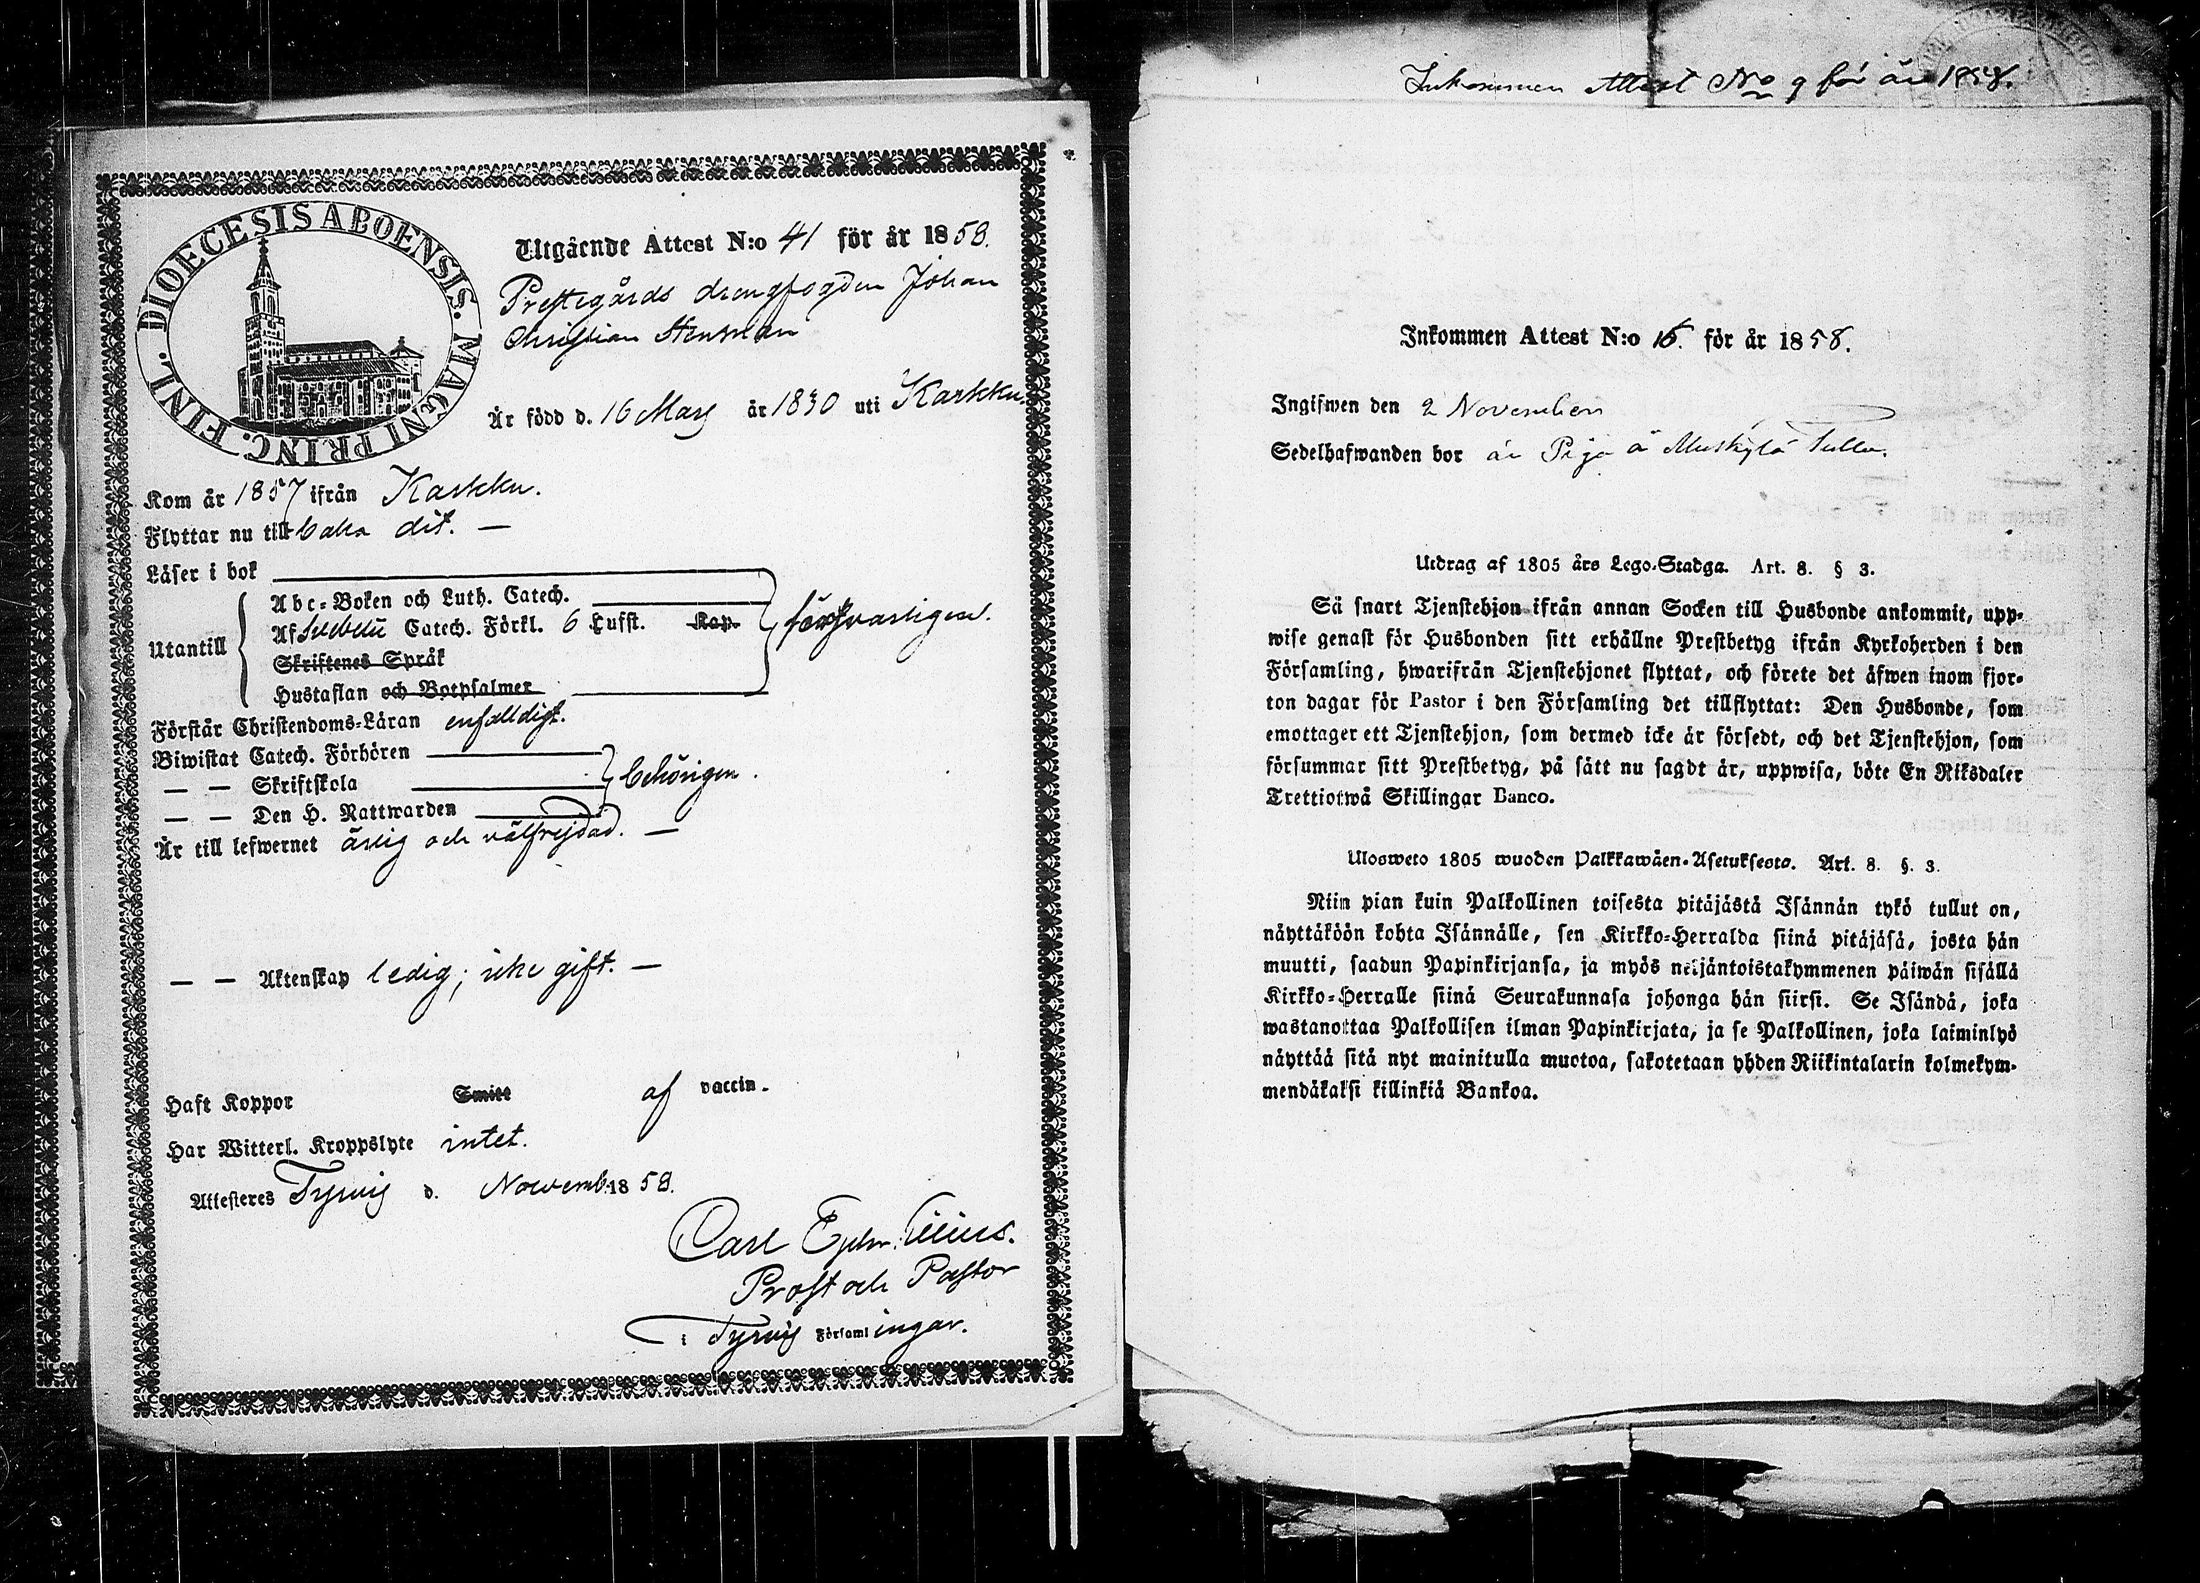 DIOECESIS ABOENSIS. MAGNI PRINC. FINL.
Utgående Attest N:o 41 för år 1858.
Prestegårds drengfogden Johan
Christian Stenman
Är född d. 16 Mars år 1830 uti Karkku.
Kom år 1857 ifrån Karkku.
Flyttar nu tillbaka dit. —
Läser i bok
Abc-Boken och Luth. Catech.
Utantill
Af Svebelii Catech. Förkl. 6 Lufst. Kap.
försvarligen.
Skriftenes Språk
Hustaflan och Botpsalmer
Förstår Christendoms-Läran enfaldigt.
Biwistat Catech. Förhören
— — Skriftskola
behörigen.
— — Den H. Nattwarden
Är till lefwernet ärlig och välfrejdad. —
— — Äktenskap ledig; icke gift. —
Haft Koppor Smitt af vaccin.
Har Witterl. Kroppslyte intet.
Attesteres Tyrvis d. Novemb. 1858.
Carl Ephr.
Prost och Pastor
i Tyrvis Församlingar.
Inkommen Attest No 9 för år 1858.
Inkommen Attest N:o 16. för år 1858.
Ingifwen den 2 November
Sedelhafwanden bor är Piga å
Utdrag af 1805 års Lego-Stadga. Art. 8. § 3.
Så snart Tjenstehjon ifrån annan Socken till Husbonde ankommit, upp-
wise genast för Husbonden sitt erhållne Prestbetyg ifrån Kyrkoherden i den
Församling, hwarifrån Tjenstehjonet flyttat, och förete det äfwen inom fjor-
ton dagar för Pastor i den Församling det tillflyttat: Den Husbonde, som
emottager ett Tjenstehjon, som dermed icke är försedt, och det Tjenstehjon, som
försummar sitt Prestbetyg, på sätt nu sagdt är, uppwisa, böte En Riksdaler
Trettiotwå Skillingar Banco.
Ulosweto 1805 wuoden Palkkawäen-Asetuksesta. Art. 8. §. 3.
Niin pian kuin Palkollinen toisesta pitäjästä Isännän tykö tullut on,
näyttäköön kohta Isännälle, sen Kirkko-Herralda siinä pitäjäsä, josta hän
muutti, saadun Papinkirjansa, ja myös neljäntoistakymmenen päiwän sisällä
Kirkko-Herralle siinä Seurakunnasa johonga hän siirsi. Se Isändä, joka
wastanottaa Palkollisen ilman Papinkirjata, ja se Palkollinen, joka laiminlyö
näyttää sitä nyt mainitulla muotoa, sakotetaan yhden Riikintalarin kolmekym-
mendäkaksi killinkiä Bankoa.